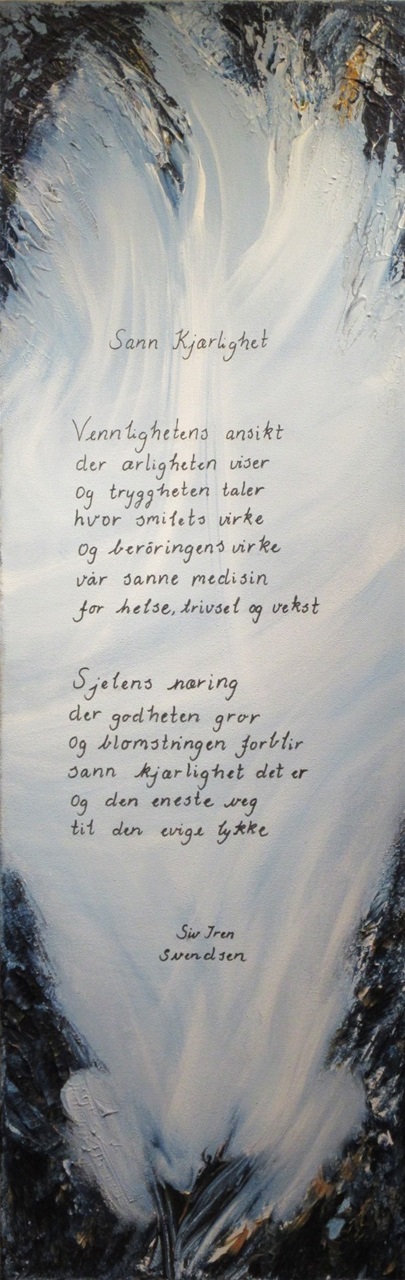 Sann Kjærlighet
Vennlighetens ansikt
der ærligheten viser
og tryggheten taler
hvor smilets virke
og beröringens virke
vår sanne medisin
for helse, trivsel og vekst
Sjelens næring
der godheten gror
og blomstringen forblir
sann kjærlighet det er
og den eneste veg
til den evige lykke
Siv Iren
Svendsen